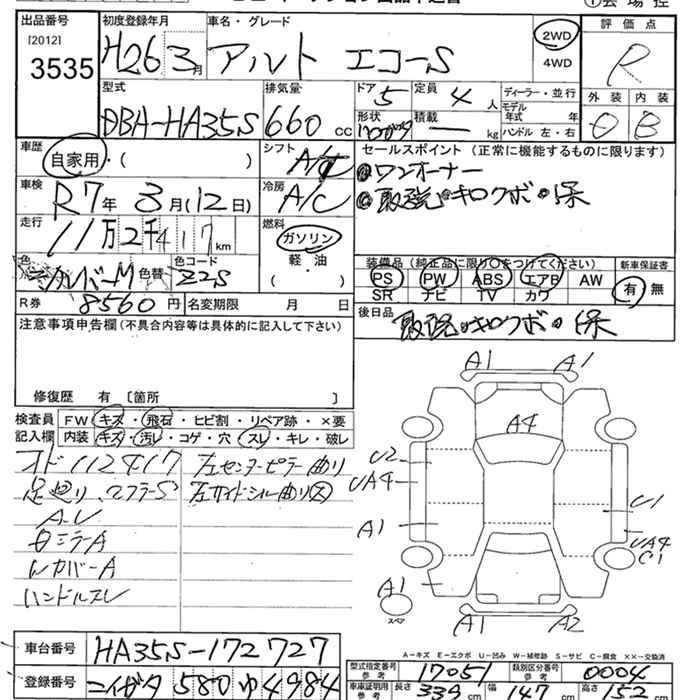 出品番号 初度登録年月 車名・グレード ①会場控
[2012] 3535
H26 3月 アルト エコーS
2WD 4WD
評価点 R
型式 排気量 ドア 5 定員 4人 ディーラー・並行
DBA-HA35S 660cc 形状 積載 — kg モデル年式 年 ハンドル 左・右
外装 内装 B
車歴 自家用・( )
シフト A/T
セールスポイント (正常に機能するものに限ります)
ワンオーナー
取説・キロクボ・保
車検 R7年3月(12日)
冷房 A/C
走行 11万2千417km
燃料 ガソリン 軽油 ( )
色 シルバーM 色替 色コード Z2S
装備品 (純正品に限り○をつけてください) 新車保証書
PS PW ABS エアB AW 有 無
SR ナビ TV カワ
R券 8560円 名変期限 月 日
後日品 取説・キロクボ・保
注意事項申告欄 (不具合内容等は具体的に記入して下さい)
修復歴 有 〔箇所 〕
検査員 FW キズ・飛石・ヒビ割・リペア跡・×要
記入欄 内装 キズ・汚レ・コゲ・穴・スレ・キレ・破レ
オド112417 左センターピラー曲り
足廻り、マフラーS 左サイドシル曲り大
ハンドルスレ
A1 A1
A4
U2
UA4
A1
U1
UA4
C1
A1
スペア
A1 A2
車台番号 HA35S-172727
登録番号 ニイガタ 580 ゆ 4984
A-キズ E-エクボ U-凹み W-補修跡 S-サビ C-腐食 ××-交換済
型式指定番号 参考 17051 類別区分番号 参考 0004
車庫証明用 参考 長さ 339cm 幅 147cm 高さ 152cm